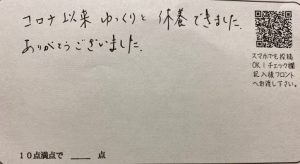 コロナ以来ゆっくりと休養できました。
ありがとうございました。
スマホでも投稿
OK！チェック欄
記入後フロント
へお渡し下さい。
１０点満点で ____ 点